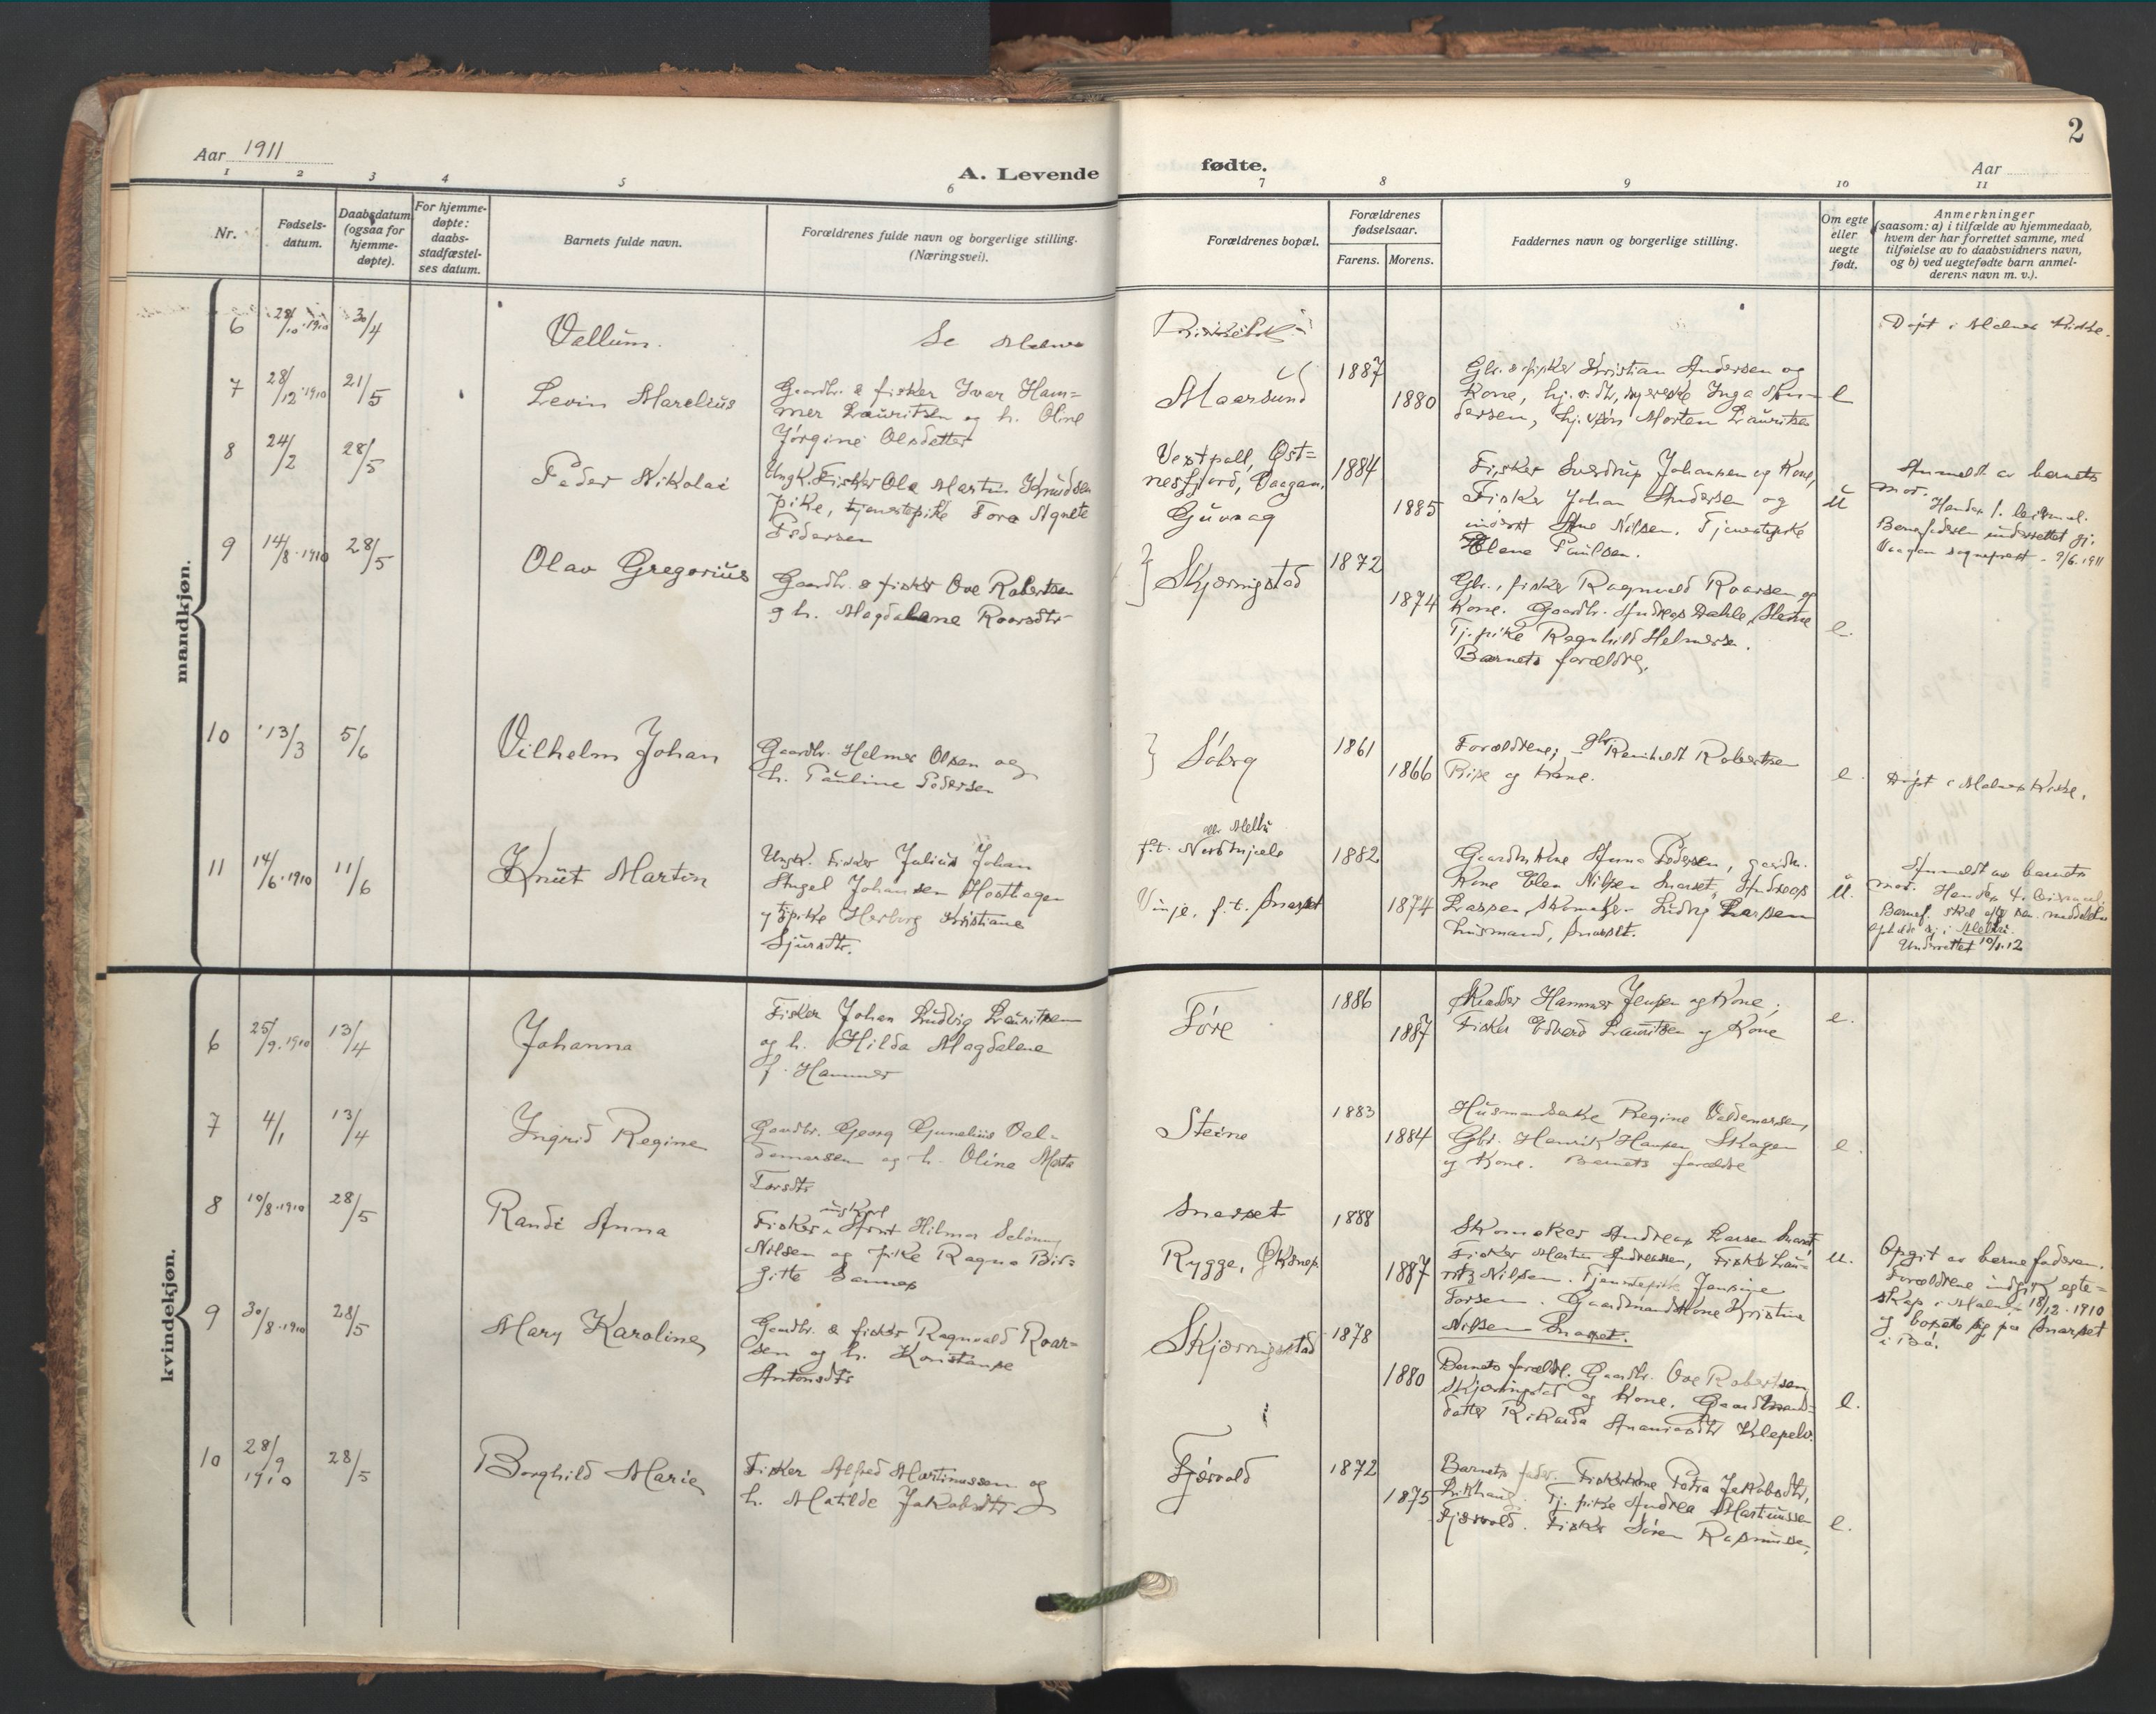 2
Aar 1911
A. Levende
fødte.
Aar
1 2 3 4 5 6 7 8 9 10 11
Nr.
Fødsels-
datum.
Daabsdatum
(ogsaa for
hjemme-
døpte).
For hjemme-
døpte:
daabs-
stadfæstel-
ses datum.
Barnets fulde navn.
Forældrenes fulde navn og borgerlige stilling.
(Næringsvei).
Forældrenes bopæl.
Forældrenes
fødselsaar.
Farens. Morens.
Faddernes navn og borgerlige stilling.
Om egte
eller
uegte
født.
Anmerkninger
(saasom: a) i tilfælde av hjemmedaab,
hvem der har forrettet samme, med
tilføielse av to daabsvidners navn,
og b) ved uegtefødte barn anmel-
derens navn m. v.).
mandkjøn.
6 28/10 1910 30/4 Vallum. Se Malnes
Døpt i Malnes Kirke.
7 28/12 1910 21/5 Levin Marelius
Gaardbr. & fisker Ivar Ham=
mer Lauritsen og h. Oline
Jørgine Olsdatter
Maarsund
1887
1880
Gbr. & fisker Kristian Andersen og
Kone, hj. v. dtr, syerske Inga An-
dersen, hj. v. søn Morten Lauritsen
e
8 24/2 28/5 Peder Nikolai
Ungk. Fisker Ole Martin Knudsen
pike, tjenestepike Tora Agnete
Pedersen
Vestpoll, Øst=
nesfjord, Vaagan.
Guvaag
1884
1885
Fisker Sverdrup Johansen og Kone,
Fisker Johan Andersen og
inderst Ane Nilsen. Tjenestepike
Elene Paulsen.
u
Anmeldt av barnets
mor. Hendes 1. leiermal.
Barnefaderen underrettet gj.
Vaagan sogneprest. 9/6. 1911
9 14/8 1910 28/5 Olav Gregorius
Gaardbr. & fisker Ove Robertsen
og h. Magdalene Roarsdtr
Skjærringstad
1872
1874
Gbr., fisker Ragnvald Roarsen og
Kone. Gaardbr. Andreas Dahle, Steine
Tj. pike Ragnhild Helmersen.
Barnets forældre.
e.
10 13/3 5/6 Vilhelm Johan
Gaardbr. Helmer Olsen og
h. Pauline Pedersen
Søberg
1861
1866
Forældrene; gbr Reinholdt Robertsen
Rise og Kone.
e.
Døpt i Malnes Kirke.
11 14/6 1910 11/6 Knut Martin
Ungk. Fisker Julius Johan
Stugel Johansen Hosthagen
og pike Herborg Kristiane
Sjursdtr.
eller Melbu
f.t. Nordmjele
Vinje, f.t. Snarset
1882
1874
Gaardm.Kone Anna Pedersen, gaardm.
Kone Elen Nilsen Snarset, Andreas
Larsen, Skomaker Ludvig Larsen
husmand, Snarset.
u.
Anmeldt av barnets
mor. Hendes 4. leiermaal.
Barnef. skal efter sen. meddelelse
opholde sig i Melbu.
Underrettet 10/1.12
kvindekjøn.
6 25/9 1910 13/4 Johanna
Fisker Johan Ludvig Lauritsen
og h. Hilda Magdalene
f. Hammer
Føre
1886
1887
Skrædder Hammer Jensen og Kone;
Fisker Edvard Lauritsen og Kone
e.
7 4/1 13/4 Ingrid Regine
Gaardbr. Georg Gunelius Val-
demarsen og h. Olina Marta
Larsdtr
Steine
1883
1884
Husmandsenke Regine Valdemarsen,
Gbr. Henrik Hansen Skagen
og Kone. Barnets forældre
e.
8 10/8 1910 28/5 Randi Anna
ungkarl
Fisker Arnt Hilmar Schøning
Nilsen og pike Ragna Bir=
gitte Sannes
Snarset
Rygge, Øksnes
1888
1887
Skomaker Andreas Larsen Snarset,
Fisker Martin Andreassen, Fisker Lau=
ritz Nilsen. Tjenestepike Jensine
Torsen. Gaardmandskone Kristine
Nilsen Snarset.
u.
Opgit av barnefaderen.
Forældrene indgik egte=
skap i Malnes 18/12 1910
og bosatte sig paa Snarset
i Bø.
9 30/8 1910 28/5 Mary Karoline
Gaardbr. & fisker Ragnvald Roar=
sen og h. Konstanse
Antonsdtr
Skjærringstad
1878
1880
Barnets forældre. Gaardbr. Ove Robertsen
Skjærringstad og Kone. Gaardmands=
datter Rikarda Ananiasdtr Klepelv.
e.
10 28/9 1910 28/5 Borghild Marie
Fisker Alfred Martinussen og
h. Matilde Jakobsdtr
Fjærvold
1872
1875
Barnets fader. Fiskerkone Petra Jakobsdtr,
Tj. pike Andrea Martinussen
Fjærvold. Fisker Søren Rasmussen,
e.